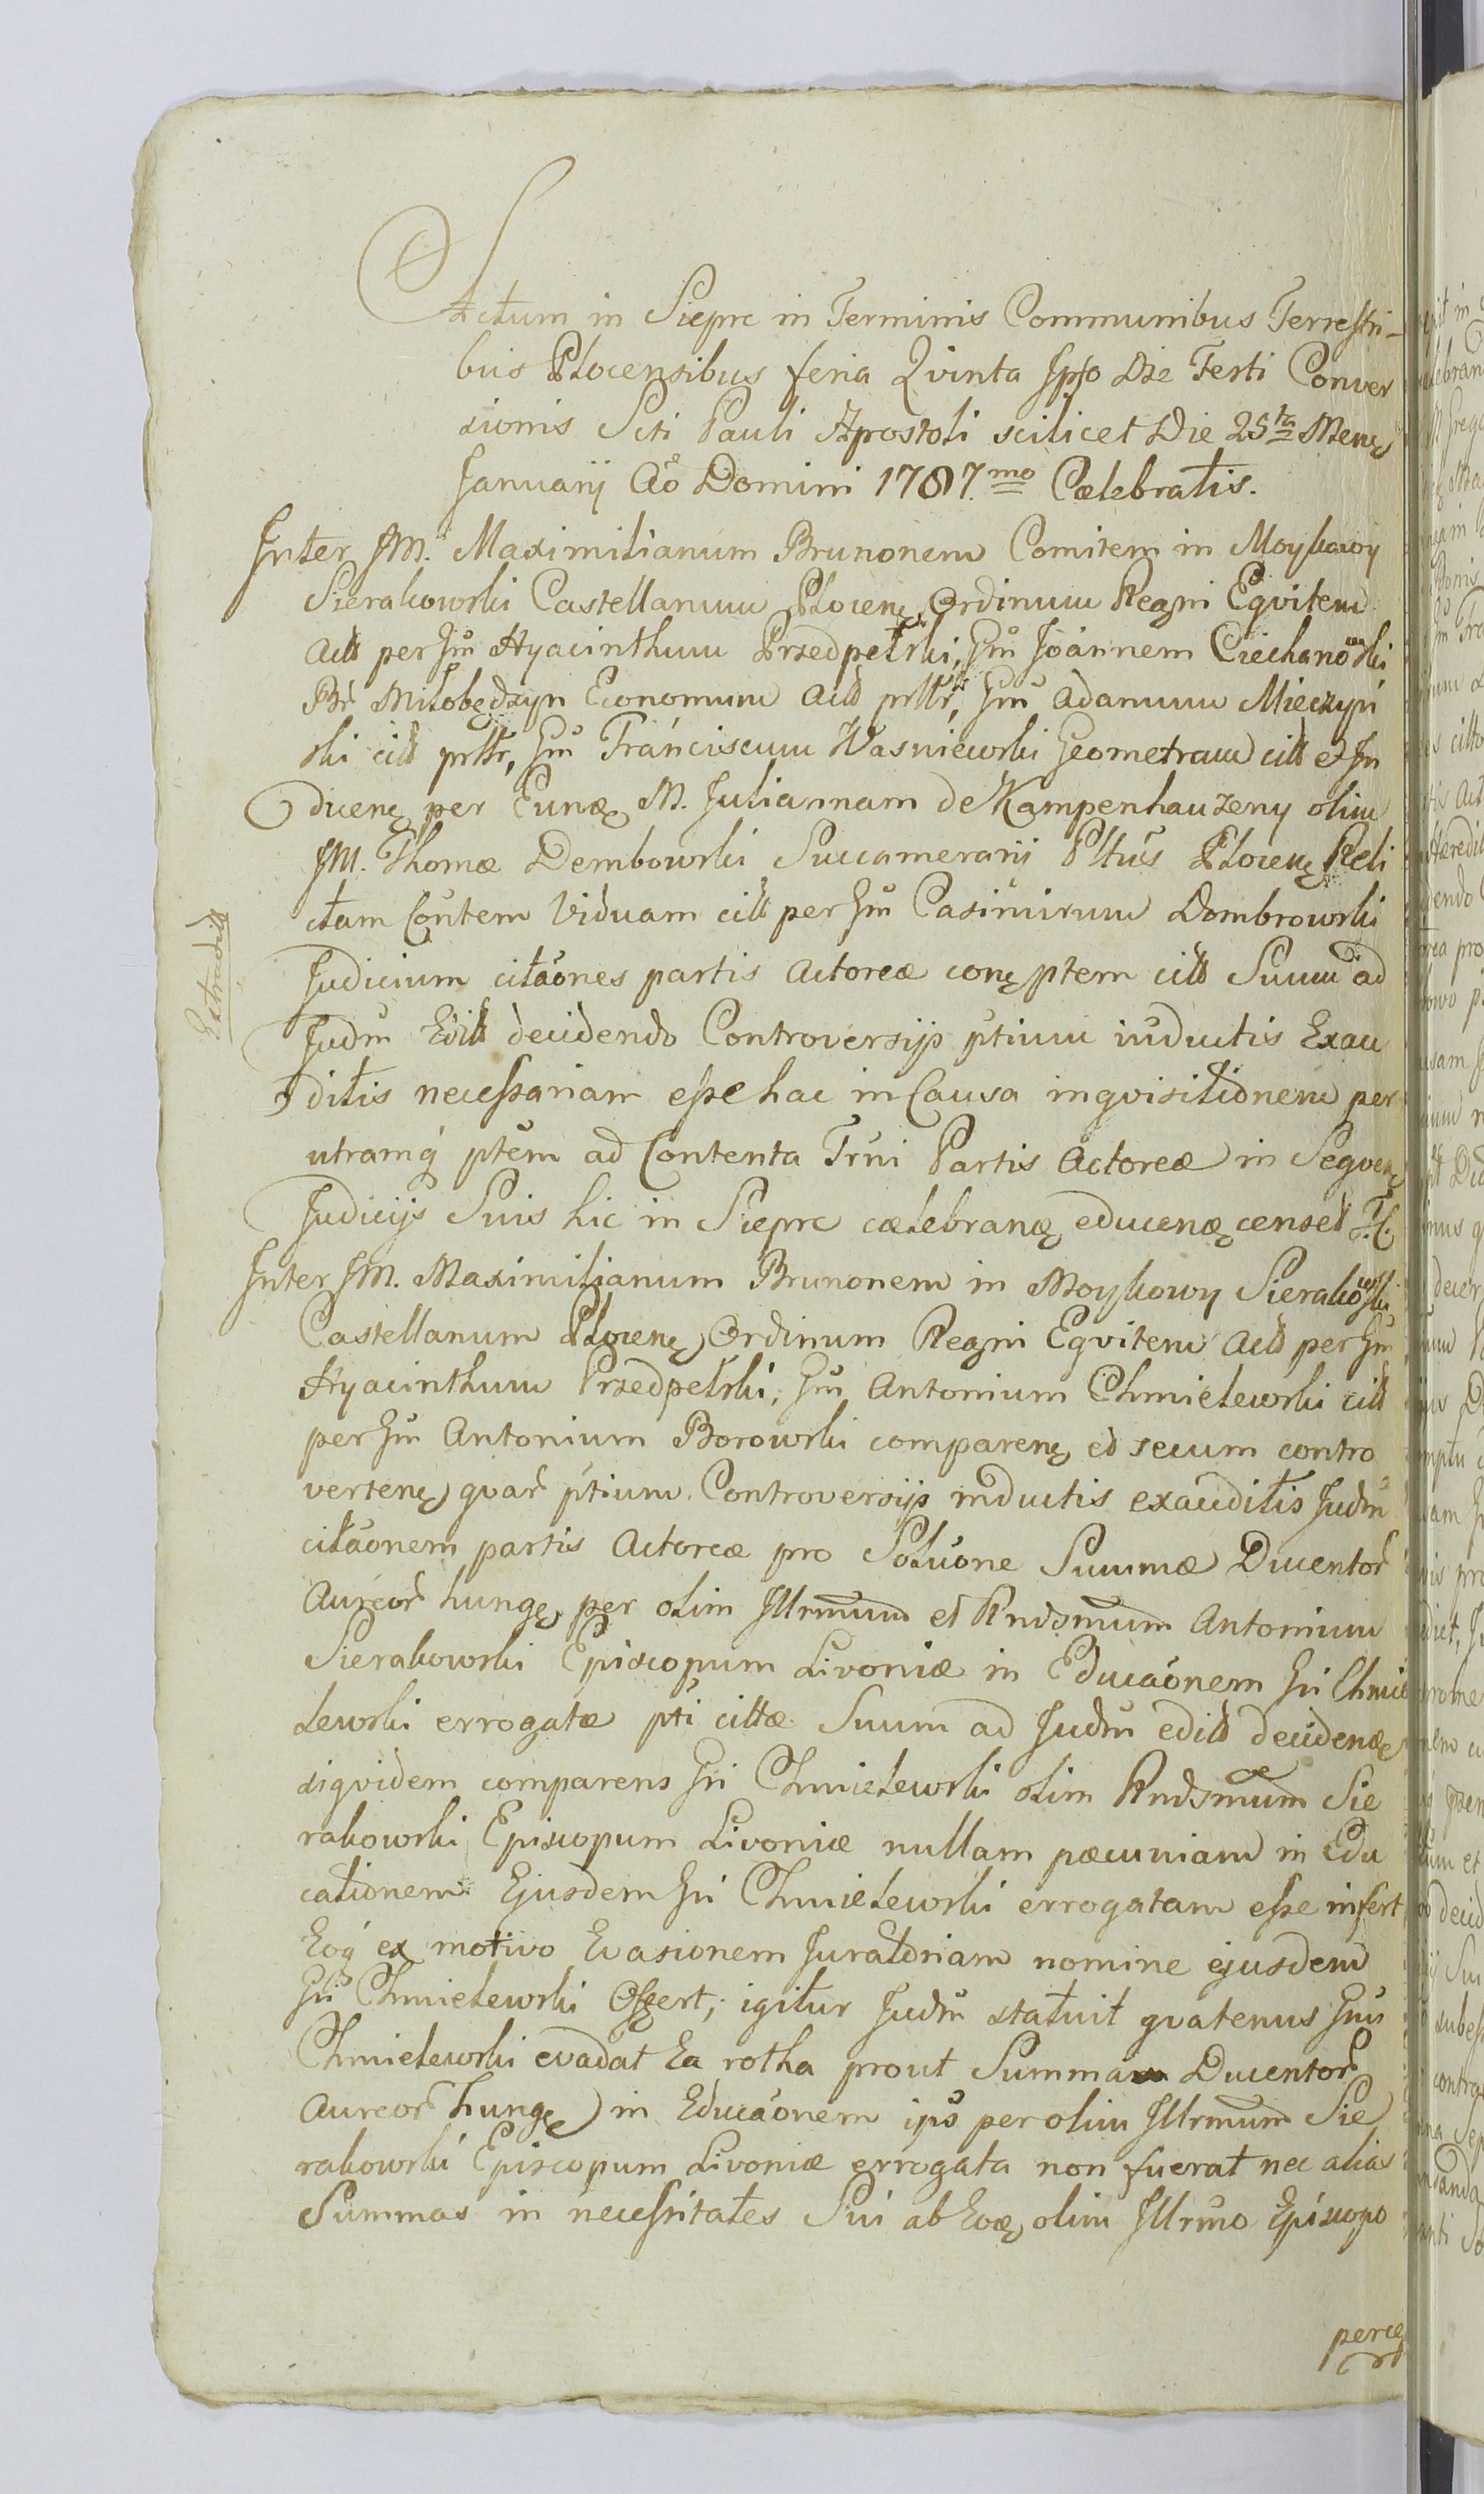 Actum in Sieprc in Terminis Communibus Terrestri-
bus Plocensibus feria Qvinta Ipso Die Festi Conver
sionis Scti Pauli Apostoli scilicet Die 25ta Mens
Januarij Aõ Domini 1787.mo Cælebratis.
Inter JM. Maximilianum Brunonem Comitem in Moykowy
Sierakowski Castellanum Plocens Ordinum Regni Eqvitem
Actt per Gm Hyacinthum Przedpelski, Gm Joannem Ciechanowski
Br Miłobędzyn Economum Actt prttr, Gm Adamum Mieczyn
ski citt prttr, Gm Franciscum Wasniewski Geometram citt et In
ducens per Eunde M. Juliannam de Kampenhauzeny olim
JM. Thomæ Dembowski Succamerarij Pltus Plocens Reli
ctam Contem Viduam citt per Gm Casimirum Dombrowski
Judicium citaones partis Actoreæ cons ptem citt Suum ad
Judm Editt decidendo Controversijs ptium inductis Exau
ditis necessariam esse hac in Causa inqvisitionem per
utramq ptem ad Contenta Trni Partis Actoreæ in Seqven
Judicijs Suis hic in Sieprc cælebrand educend censet T.C.
Inter JM. Maximilianum Brunonem in Moykowy Sierakowski
Castellanum Plocens Ordinum Regni Eqvitem Actt per Gm
Hyacinthum Przedpelski, Gm Antonium Chmielewski citt
per Gm Antonium Borowski comparens et secum contro
vertens qvar ptium Controversijs inductis exauditis Judm
citaonem partis Actoreæ pro Soluone Summæ Ducentor
Aureor hung per olim Illrmum et Rndsmum Antonium
Sierakowski Episcopum Livoniæ in Educaonem Gi Chmie
lewski errogatæ pti cittæ Suum ad Judm editt decidend
siqvidem comparens Gi Chmielewski olim Rndsmum Sie
rakowski Episcopum Livoniæ nullam pæcuniam in Edu
cationem Ejusdem Gi Chmielewski errogatam esse infert
Eoq ex motivo Evasionem Juratoriam nomine ejusdem
Gi Chmielewski Offert; igitur Judm statuit qvatenus Gnus
Chmielewski evadat Ea rotha prout Summa Ducentor
Aureor hung in Educaonem ips per olim Illrmum Sie
rakowski Episcopum Livoniæ errogata non fuerat nec alias
Summas in necessitates Sui ab Eod olim Illrmo Episcopo
perce
Extraditt